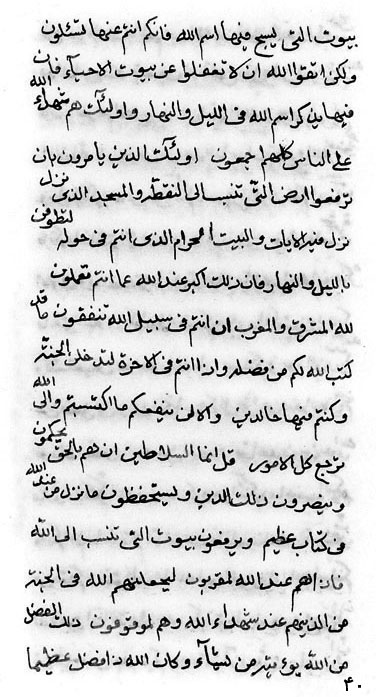 بيوت التى يسبح فيها اسم الله فانكم انتم عنها تسئلون
ولكن اتقوا الله ان لا تغفلوا عن بيوت الاحياء فان
فيها يذكر اسم الله فى الليل والنهار واولئك هم شهداء الله
على الناس كلهم اجمعون اولئك الذين يامرون بان
ترفعوا ارض التى تنسب الى النقطة والمسجد الذى نزل
نزل فيه الايات والبيت الحرام الذى انتم فى حوله لتطوفن
بالليل والنهار فان ذلك اكبر عند الله عما انتم تعملون
لله المشرق والمغرب ان انتم فى سبيل الله تنفقون ما قد
كتب الله لكم من فضله واذا انتم فى الاخرة لتدخلن الجنة
وكنتم فيها خالدين والا لن ينفعكم ما اكتسبتم والى الله
ترجع كل الامور قل انما السلاطين ان هم بالحق يحكمون
وينصرون ذلك الدين ويستحفظون ما نزل من عند الله
فى كتاب عظيم ويرفعون بيوت التى تنسب الى الله
فاذا هم عند الله لمقربون ليجعلنهم الله فى الجنة
من الذينهم عند شهداء الله وهم لموقوفون ذلك الفضل
من الله يؤتيه من يشآء وكان الله ذا فضل عظيما
۴۰